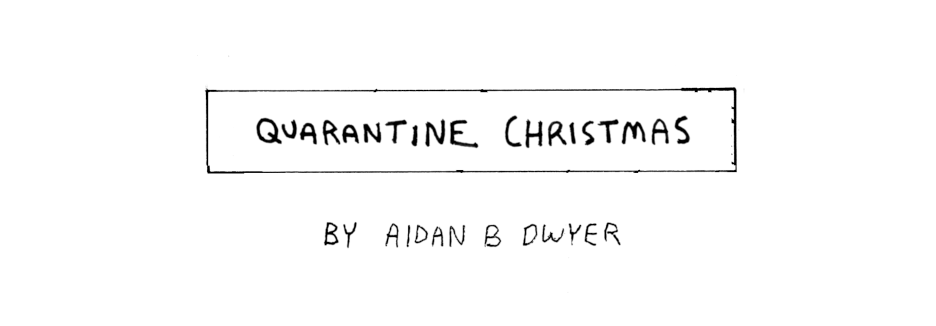 QUARANTINE CHRISTMAS
BY AIDAN B DWYER